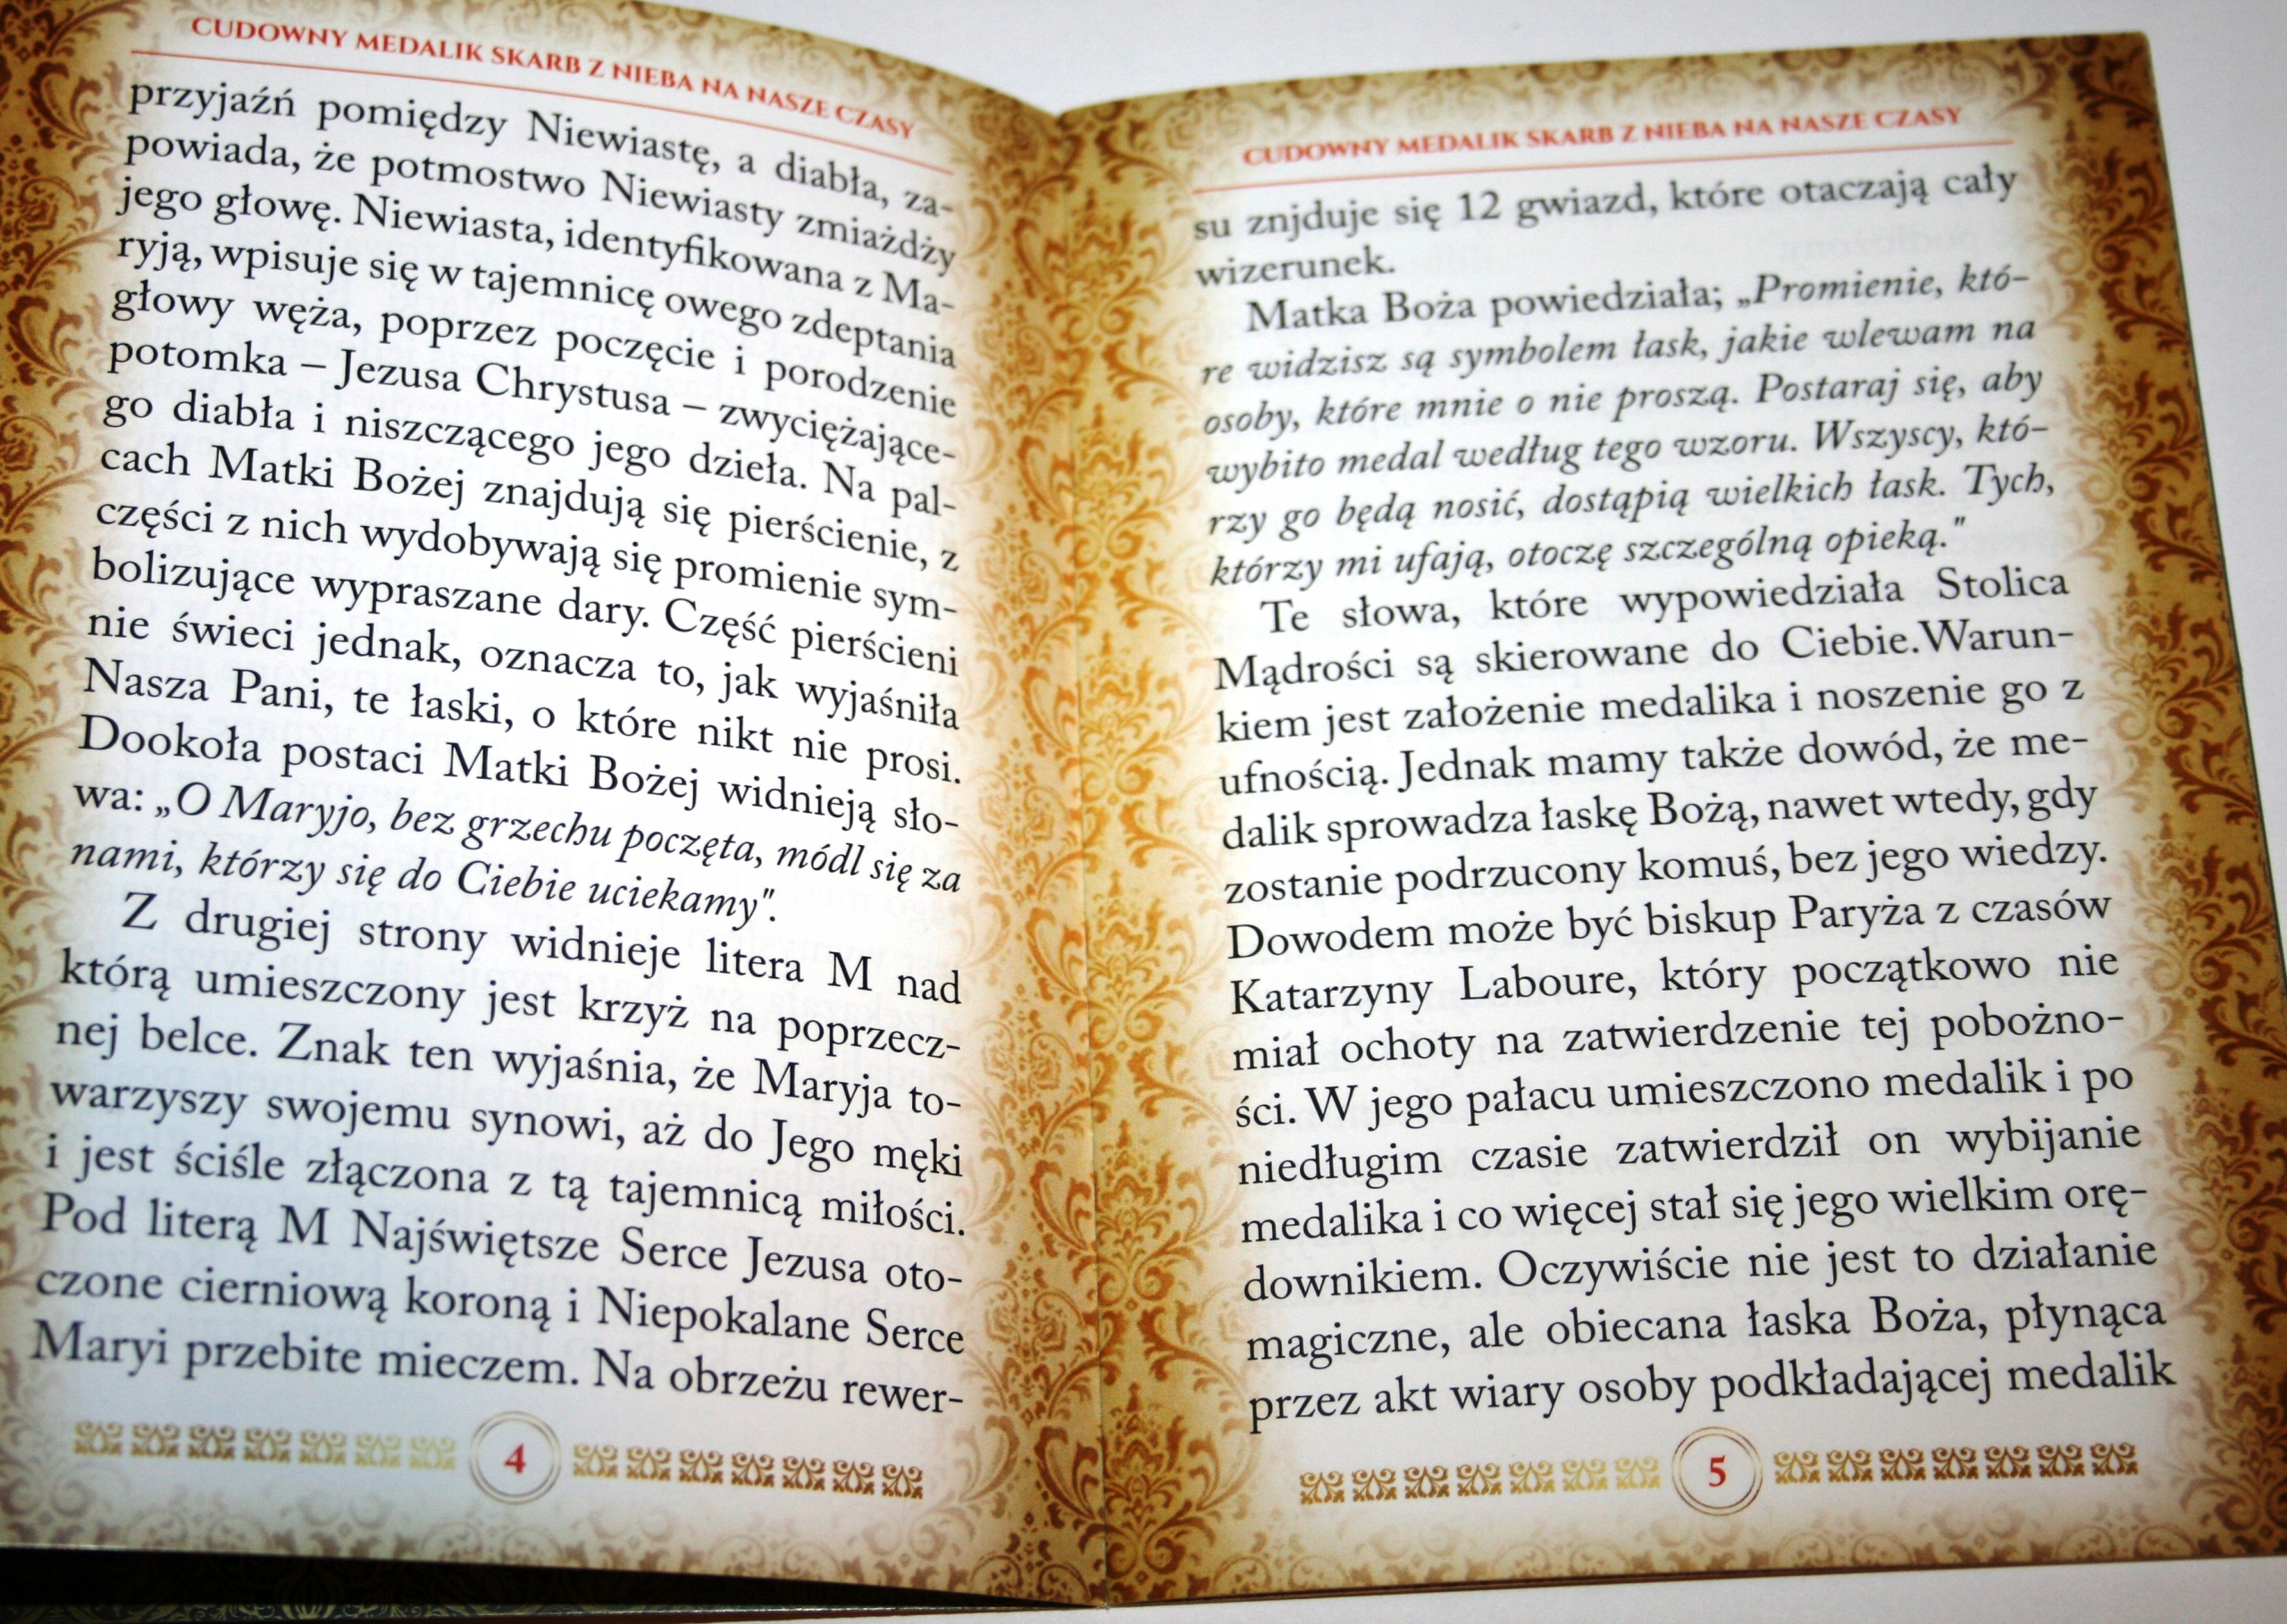 CUDOWNY MEDALIK SKARB Z NIEBA NA NASZE CZASY
przyjaźń pomiędzy Niewiastę, a diabła, za-
powiada, że potmostwo Niewiasty zmiażdży
jego głowę. Niewiasta, identyfikowana z Ma-
ryją, wpisuje się w tajemnicę owego zdeptania
głowy węża, poprzez poczęcie i porodzenie
potomka – Jezusa Chrystusa – zwyciężające-
go diabła i niszczącego jego dzieła. Na pal-
cach Matki Bożej znajdują się pierścienie, z
części z nich wydobywają się promienie sym-
bolizujące wypraszane dary. Część pierścieni
nie świeci jednak, oznacza to, jak wyjaśniła
Nasza Pani, te łaski, o które nikt nie prosi.
Dookoła postaci Matki Bożej widnieją sło-
wa: „O Maryjo, bez grzechu poczęta, módl się za
nami, którzy się do Ciebie uciekamy".
Z drugiej strony widnieje litera M nad
którą umieszczony jest krzyż na poprzecz-
nej belce. Znak ten wyjaśnia, że Maryja to-
warzyszy swojemu synowi, aż do Jego męki
i jest ściśle złączona z tą tajemnicą miłości.
Pod literą M Najświętsze Serce Jezusa oto-
czone cierniową koroną i Niepokalane Serce
Maryi przebite mieczem. Na obrzeżu rewer-
4
CUDOWNY MEDALIK SKARB Z NIEBA NA NASZE CZASY
su znjduje się 12 gwiazd, które otaczają cały
wizerunek.
Matka Boża powiedziała; „Promienie, któ-
re widzisz są symbolem łask, jakie wlewam na
osoby, które mnie o nie proszą. Postaraj się, aby
wybito medal według tego wzoru. Wszyscy, któ-
rzy go będą nosić, dostąpią wielkich łask. Tych,
którzy mi ufają, otoczę szczególną opieką."
Te słowa, które wypowiedziała Stolica
Mądrości są skierowane do Ciebie.Warun-
kiem jest założenie medalika i noszenie go z
ufnością. Jednak mamy także dowód, że me-
dalik sprowadza łaskę Bożą, nawet wtedy, gdy
zostanie podrzucony komuś, bez jego wiedzy.
Dowodem może być biskup Paryża z czasów
Katarzyny Laboure, który początkowo nie
miał ochoty na zatwierdzenie tej pobożno-
ści. W jego pałacu umieszczono medalik i po
niedługim czasie zatwierdził on wybijanie
medalika i co więcej stał się jego wielkim orę-
downikiem. Oczywiście nie jest to działanie
magiczne, ale obiecana łaska Boża, płynąca
przez akt wiary osoby podkładającej medalik
5